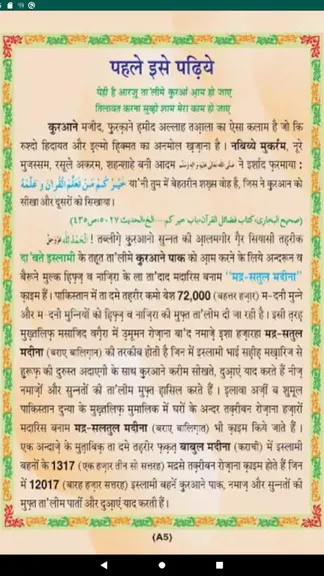 पहले इसे पढ़िये
येही है आरज़ू ता'लीमे क़ुरआं आ़म हो जाए
तिलावत करना सुब्ह़ो शाम मेरा काम हो जाए
क़ुरआने मजीद, फ़ुरक़ाने ह़मीद अल्लाह तआ़ला का ऐसा कलाम है जो कि
रुश्दो हिदायत और इ़ल्मो ह़िक्मत का अनमोल ख़ज़ाना है । नबिय्ये मुकर्रम, नूरे
मुजस्सम, रसूले अकरम, शहन्शाहे बनी आदम صلى الله تعالى عليه وسلم ने इर्शाद फ़रमाया :
خَيْرُكُمْ مَنْ تَعَلَّمَ الْقُرْآنَ وَعَلَّمَهُ या'नी तुम में बेहतरीन शख़्स वोह है, जिस ने क़ुरआन को
सीखा और दूसरों को सिखाया ।
(صحیح البخاری،کتاب فضائل القرآن،باب خیرکم...الخ،الحدیث۵۰۲۷،ص۴۳۵)
اَلْحَمْدُ لِلّٰه ! तब्लीग़े क़ुरआनो सुन्नत की आ़लमगीर ग़ैर सियासी तह़रीक
दा'वते इस्लामी के तह़त ता'लीमे क़ुरआने पाक को आ़म करने के लिये अन्दरून व
बैरूने मुल्क ह़िफ़्ज़ व नाज़िरा के ला ता'दाद मदारिस बनाम "मद्र-सतुल मदीना"
क़ाइम हैं। पाकिस्तान में ता दमे तह़रीर कमो बेश 72,000 (बहत्तर हज़ार) म-दनी मुन्ने
और म-दनी मुन्नियों को ह़िफ़्ज़ व नाज़िरा की मुफ़्त ता'लीम दी जा रही है । इसी त़रह़
मुख़्तलिफ़ मसाजिद वग़ैरा में उ़मूमन रोज़ाना बा'द नमाज़े इशा हज़ारहा मद्र-सतुल
मदीना (बराए बालिग़ान) की तरकीब होती है जिन में इस्लामी भाई सह़ीह़ मख़ारिज से
ह़ुरूफ़ की दुरुस्त अदाएगी के साथ क़ुरआने करीम सीखते, दुआ़एं याद करते हैं नीज़
नमाज़ों और सुन्नतों की ता'लीम मुफ़्त ह़ासिल करते हैं । इ़लावा अज़ीं ब शुमूल
पाकिस्तान दुन्या के मुख़्तलिफ़ मुमालिक में घरों के अन्दर तक़रीबन रोज़ाना हज़ारों
मदारिस बनाम मद्र-सलतुल मदीना (बराए बालिग़ात) भी क़ाइम किये जाते हैं ।
एक अन्दाज़े के मुत़ाबिक़ ता दमे तह़रीर फ़क़त़ बाबुल मदीना (कराची) में इस्लामी
बहनों के 1317 (एक हज़ार तीन सो सत्तरह) मद्रसे तक़रीबन रोज़ाना क़ाइम होते हैं जिन
में 12017 (बारह हज़ार सत्तरह) इस्लामी बहनें क़ुरआने पाक, नमाज़ और सुन्नतों की
मुफ़्त ता'लीम पातीं और दुआ़एं याद करती हैं ।
(A5)